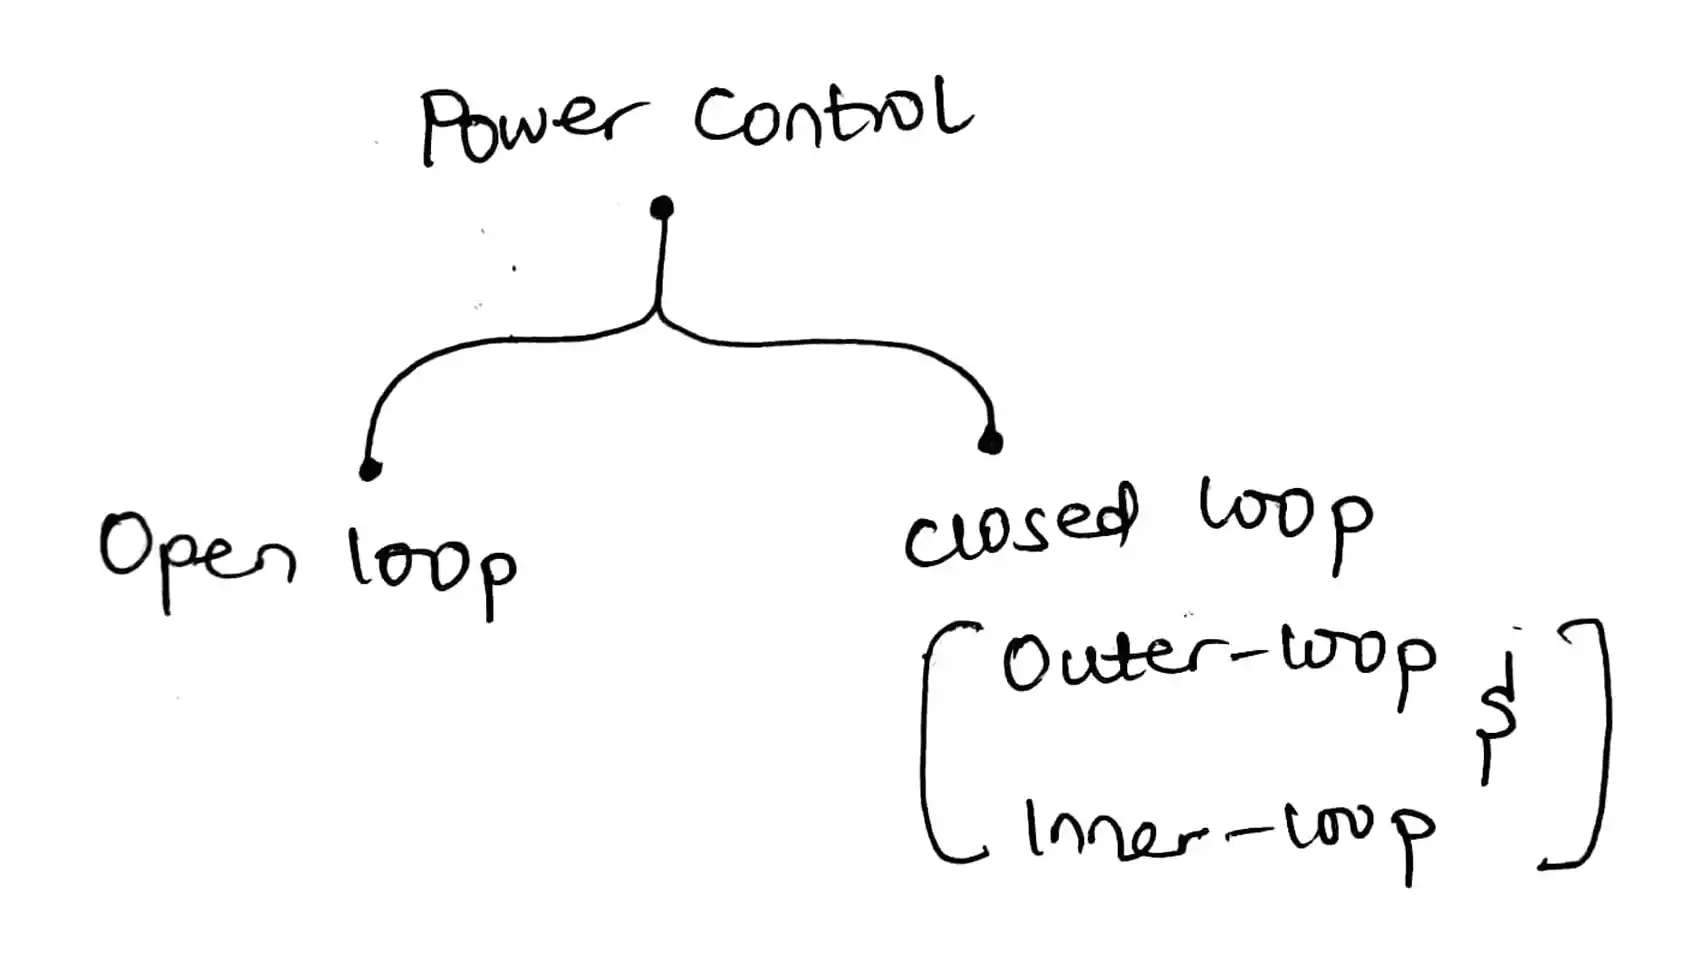 Power Control
Open loop
closed loop
Outer-loop
Inner-loop